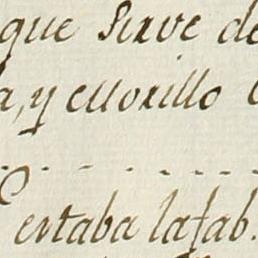 que Sirve de
a, y el
estaba la fab.